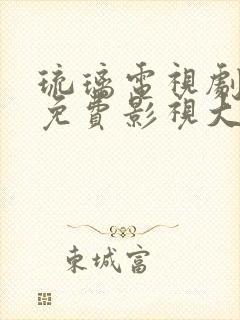 琉璃電視劇
免費影視大
東城富